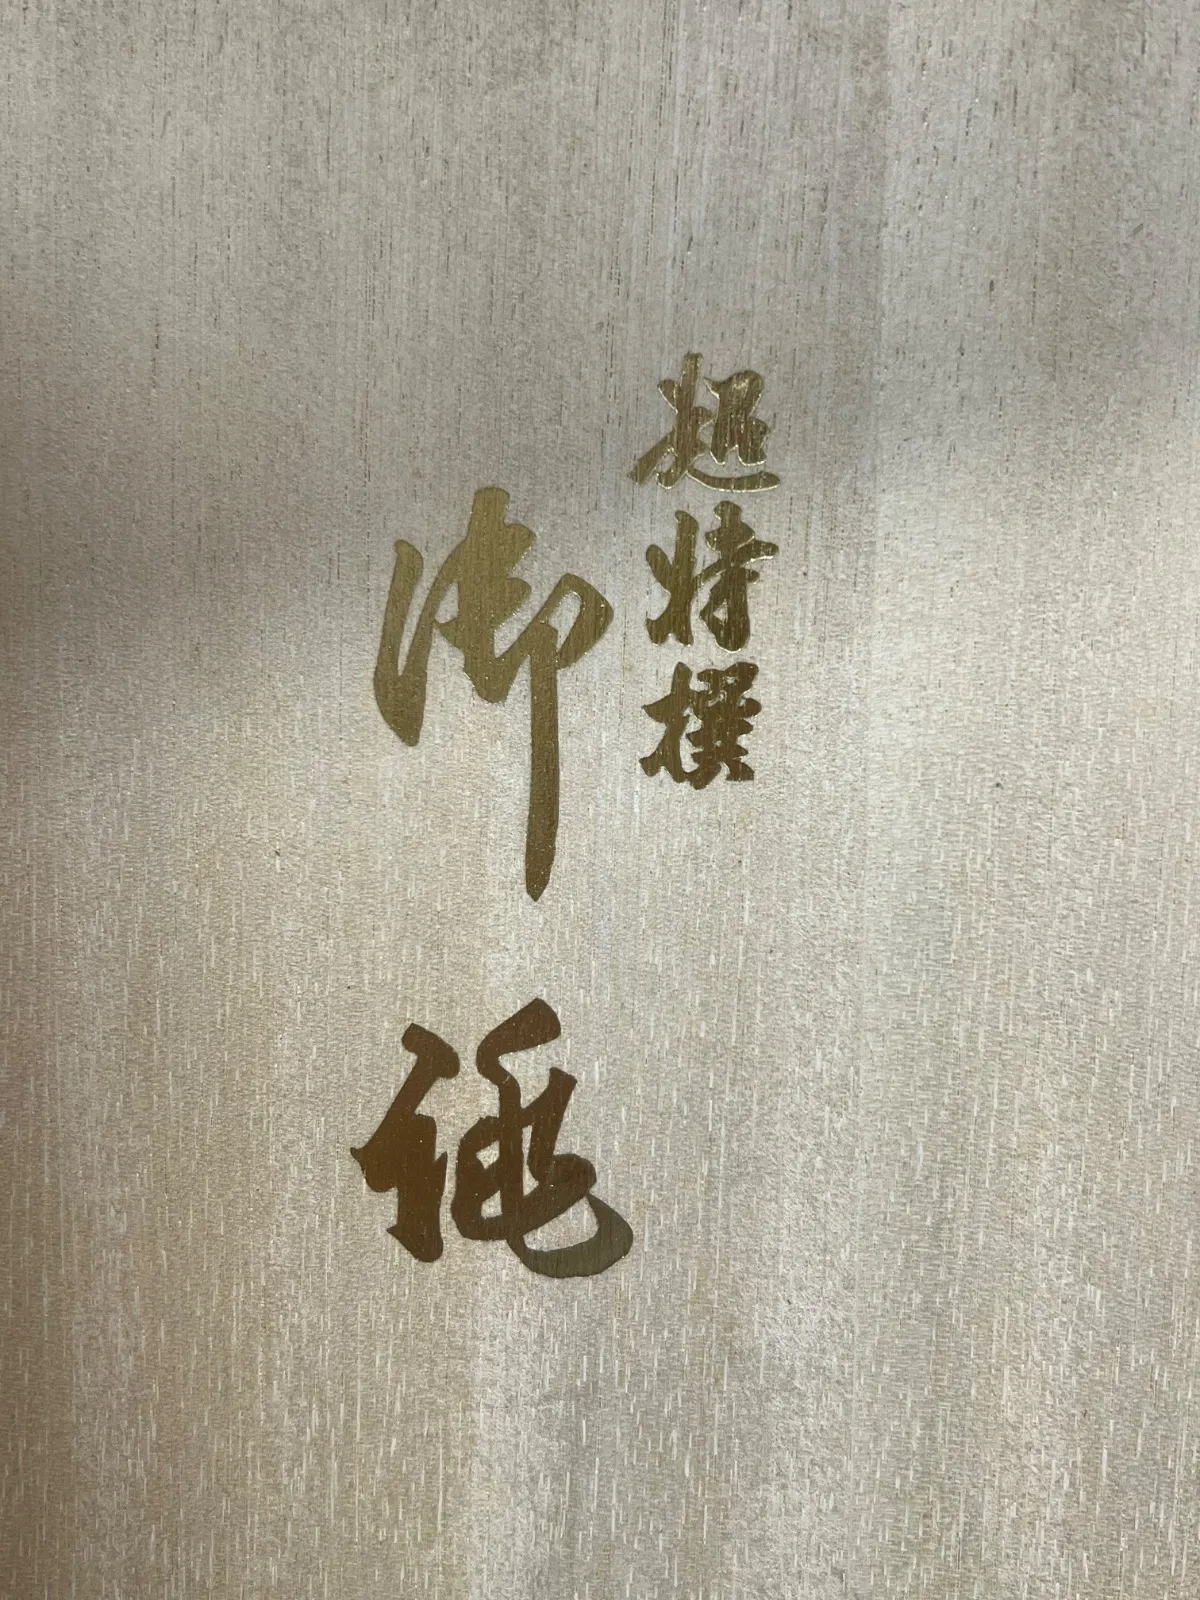 超特撰
御